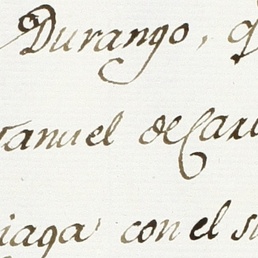 Durango, q
anuel de Car
iaga con el su